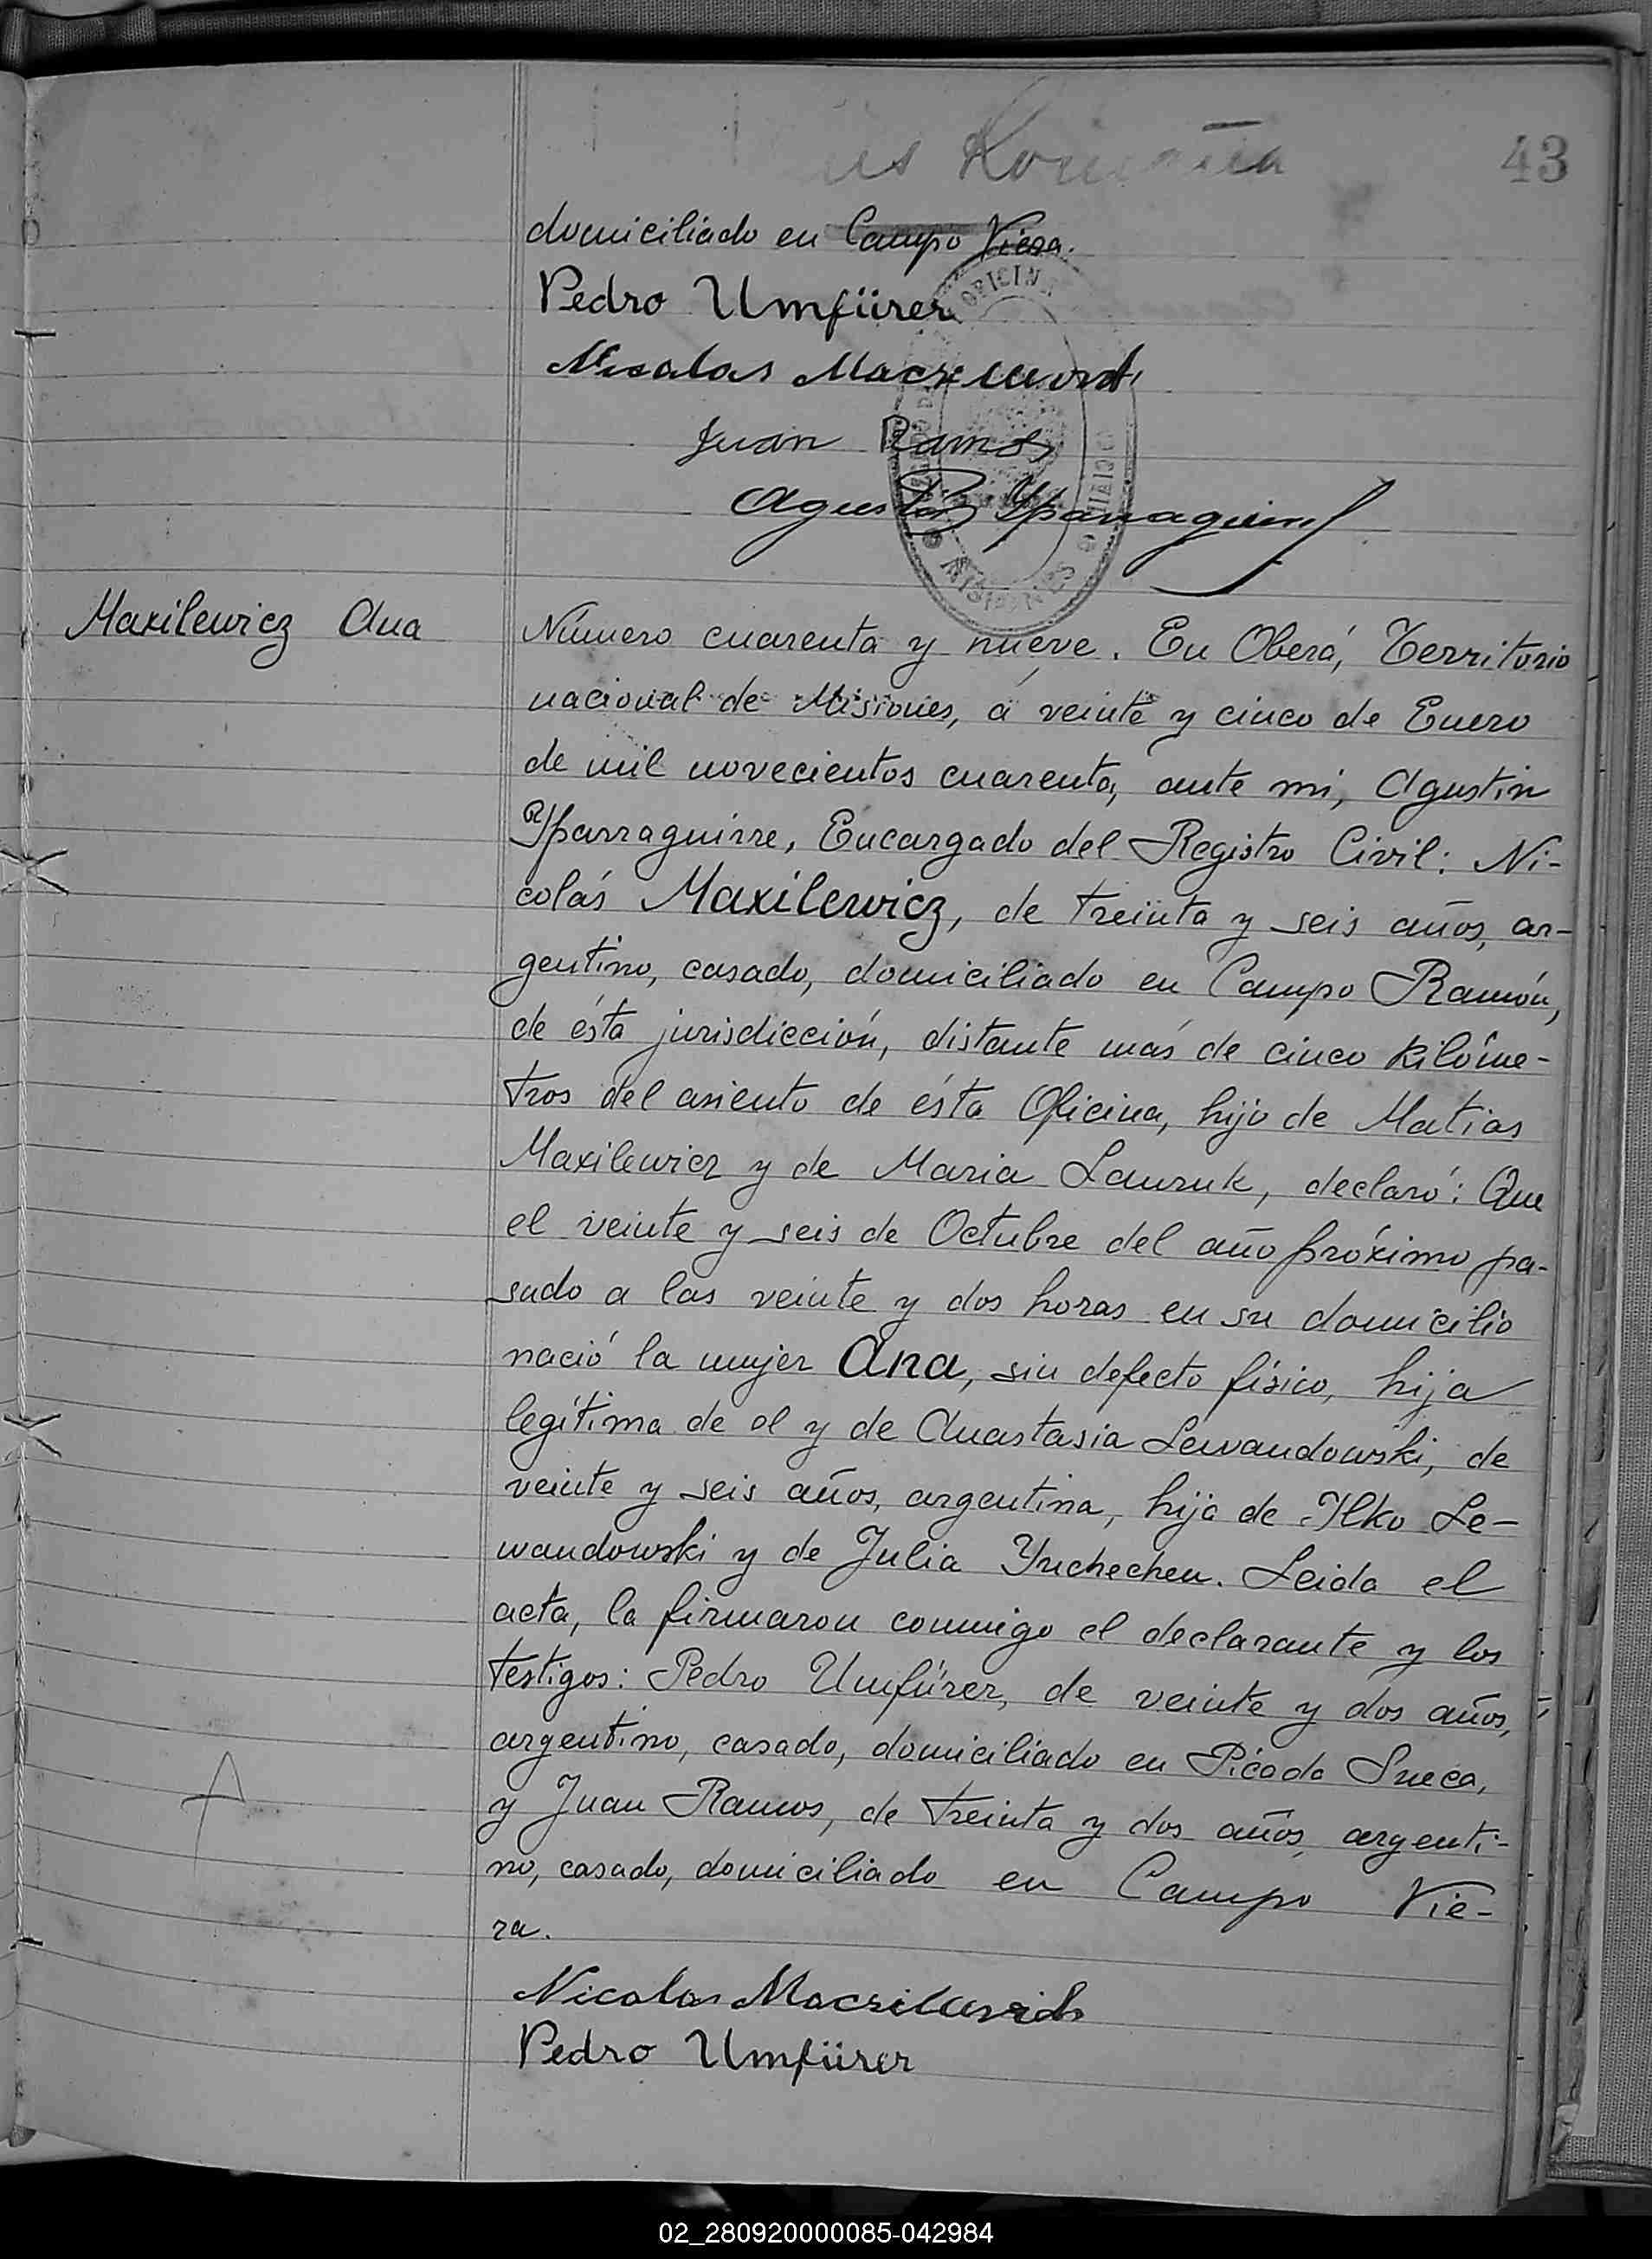 43
domiciliado en Campo Viera.
Pedro Umfürer
Nicolas
Juan Ramos
Agustin Yparraguirre
OFICINA
CIVIL
MISIONES
Maxilewicz Ana
Número cuarenta y nueve. En Oberá, Territorio
nacional de Misiones, á veinte y cinco de Enero
de mil novecientos cuarenta, ante mi, Agustin
Yparraguirre, Encargado del Registro Civil: Ni-
colás Maxilewicz, de treinta y seis años, ar-
gentino, casado, domiciliado en Campo Ramón,
de ésta jurisdicción, distante más de cinco kilóme-
tros del asiento de ésta Oficina, hijo de Matias
Maxilewicz y de Maria Lauruk, declaró: Que
el veinte y seis de Octubre del año próximo pa-
sado a las veinte y dos horas en su domicilio
nació la mujer Ana, sin defecto físico, hija
legítima de el y de Anastasia Lewandowski, de
veinte y seis años, argentina, hija de Ilko Le-
wandowski y de Julia Yuchechen. Leida el
acta, la firmaron conmigo el declarante y los
testigos: Pedro Umfúrer, de veinte y dos años,
argentino, casado, domiciliado en Picada Sueca,
y Juan Ramos, de treinta y dos años, argenti-
no, casado, domiciliado en Campo Vie-
ra.
Nicolas
Pedro Umfürer
02_280920000085-042984